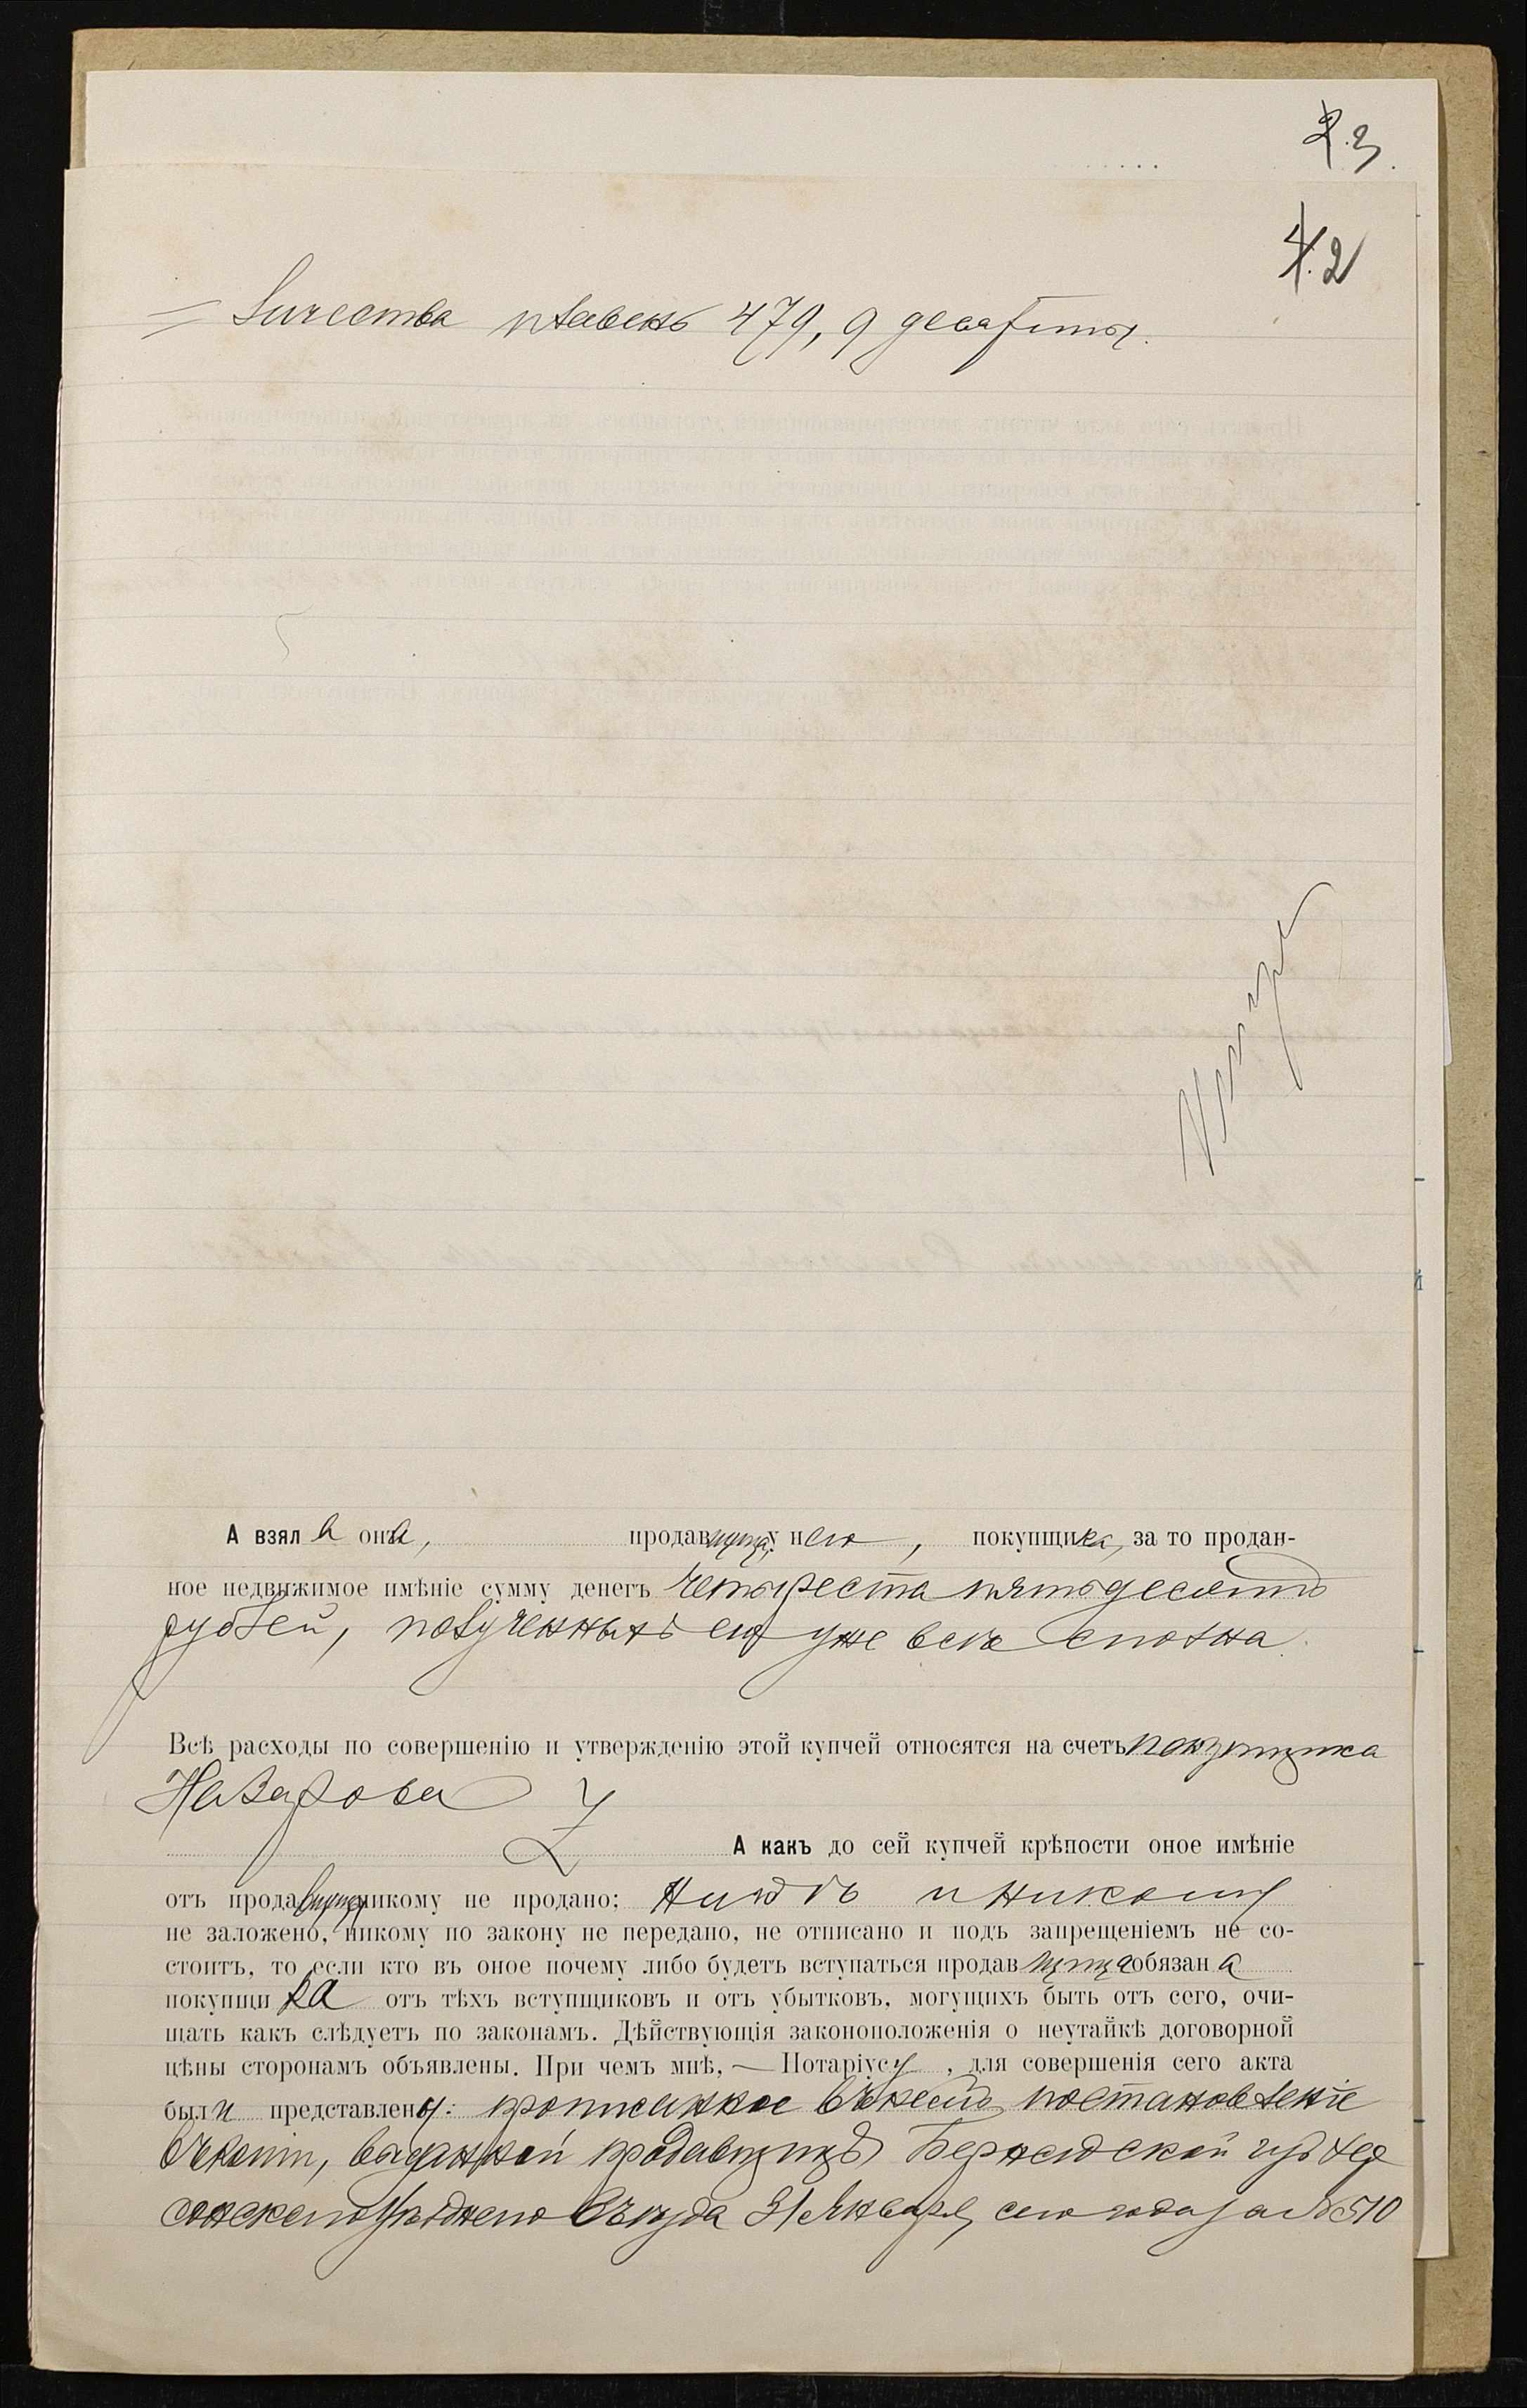 2.3.
4.2
личества плавень 479,9 десятины.
А взяла она, продавщица, у него, покупщика, за то продан-
ное недвижимое имѣніе сумму денегъ четыреста пятьдесятъ
рублей, полученныхъ ею уже всѣ сполна.
Всѣ расходы по совершенію и утвержденію этой купчей относятся на счетъ покупщика
Назарова
А какъ до сей купчей крѣпости оное имѣніе
отъ продавщицы никому не продано; нигдѣ и никому
не заложено, никому по закону не передано, не отписано и подъ запрещеніемъ не со-
стоитъ, то если кто въ оное почему либо будетъ вступаться продавщица обязана
покупщика отъ тѣхъ вступщиковъ и отъ убытковъ, могущихъ быть отъ сего, очи-
щать какъ слѣдуетъ по законамъ. Дѣйствующія законоположенія о неутайкѣ договорной
цѣны сторонамъ объявлены. При чемъ мнѣ, — Нотаріусу, для совершенія сего акта
были представлены: прописанное въ постановленіе
выданной продавщицѣ изъ Хер
сонскаго Уѣзднаго Съѣзда 31 Января сего года за № 510